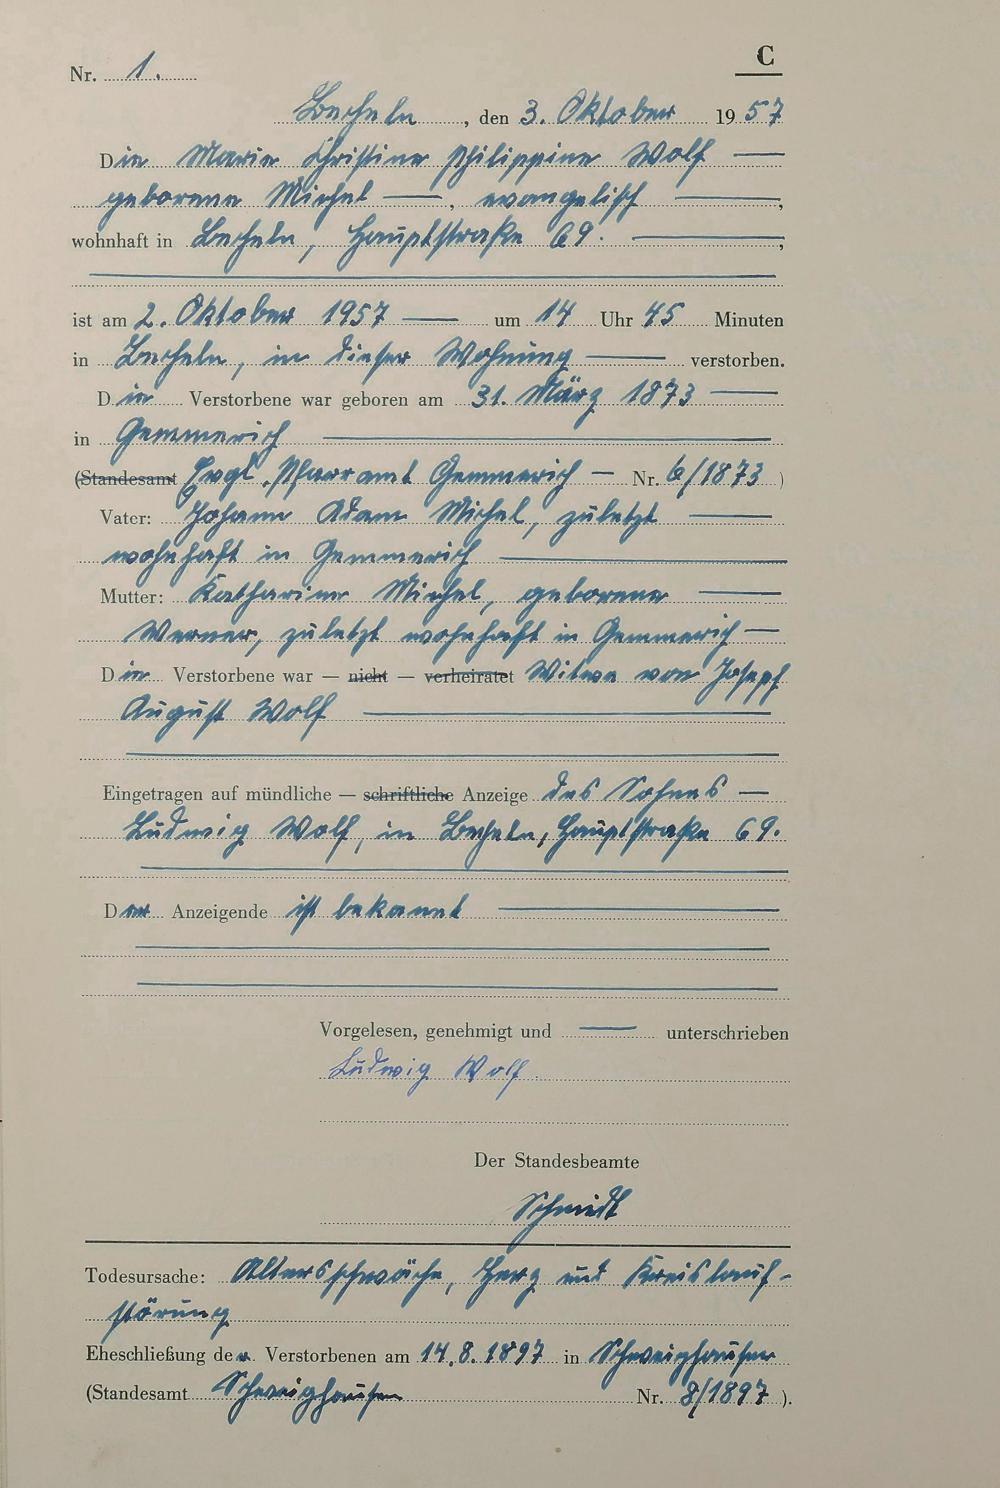 C
Nr. 1.
Becheln, den 3. Oktober 1957
Die Marie Christine Philippine Wolf —
geborene Michel —, evangelisch —,
wohnhaft in Becheln, Hauptstraße 69. —,
ist am 2. Oktober 1957 — um 14 Uhr 45 Minuten
in Becheln, in dieser Wohnung — verstorben.
Die Verstorbene war geboren am 31. März 1873 —
in Gemmerich —
(Standesamt Evgl. Pfarramt Gemmerich — Nr. 6/1873)
Vater: Johann Adam Michel, zuletzt —
wohnhaft in Gemmerich —
Mutter: Katharine Michel, geborene —
Werner, zuletzt wohnhaft in Gemmerich —
Die Verstorbene war — nicht — verheiratet Witwe von Joseph
August Wolf —
Eingetragen auf mündliche — schriftliche Anzeige des Sohnes —
Ludwig Wolf, in Becheln, Hauptstraße 69.
Der Anzeigende ist bekannt —
Vorgelesen, genehmigt und — unterschrieben
Ludwig Wolf.
Der Standesbeamte
Schmidt
Todesursache: Altersschwäche, Herz und Kreislauf-
störung
Eheschließung der Verstorbenen am 14.8.1897 in Schweighausen
(Standesamt Schweighausen Nr. 8/1897).